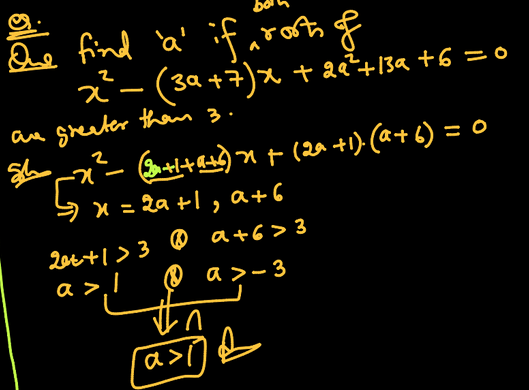 Q.
Que find 'a' if both roots of
x² - (3a+7)x + 2a²+13a+6 = 0
are greater than 3.
Sol x² - (2a+1+a+6)x + (2a+1).(a+6) = 0
⇒ x = 2a+1, a+6
2a+1 > 3 & a+6 > 3
a > 1 & a > -3
∩
a > 1